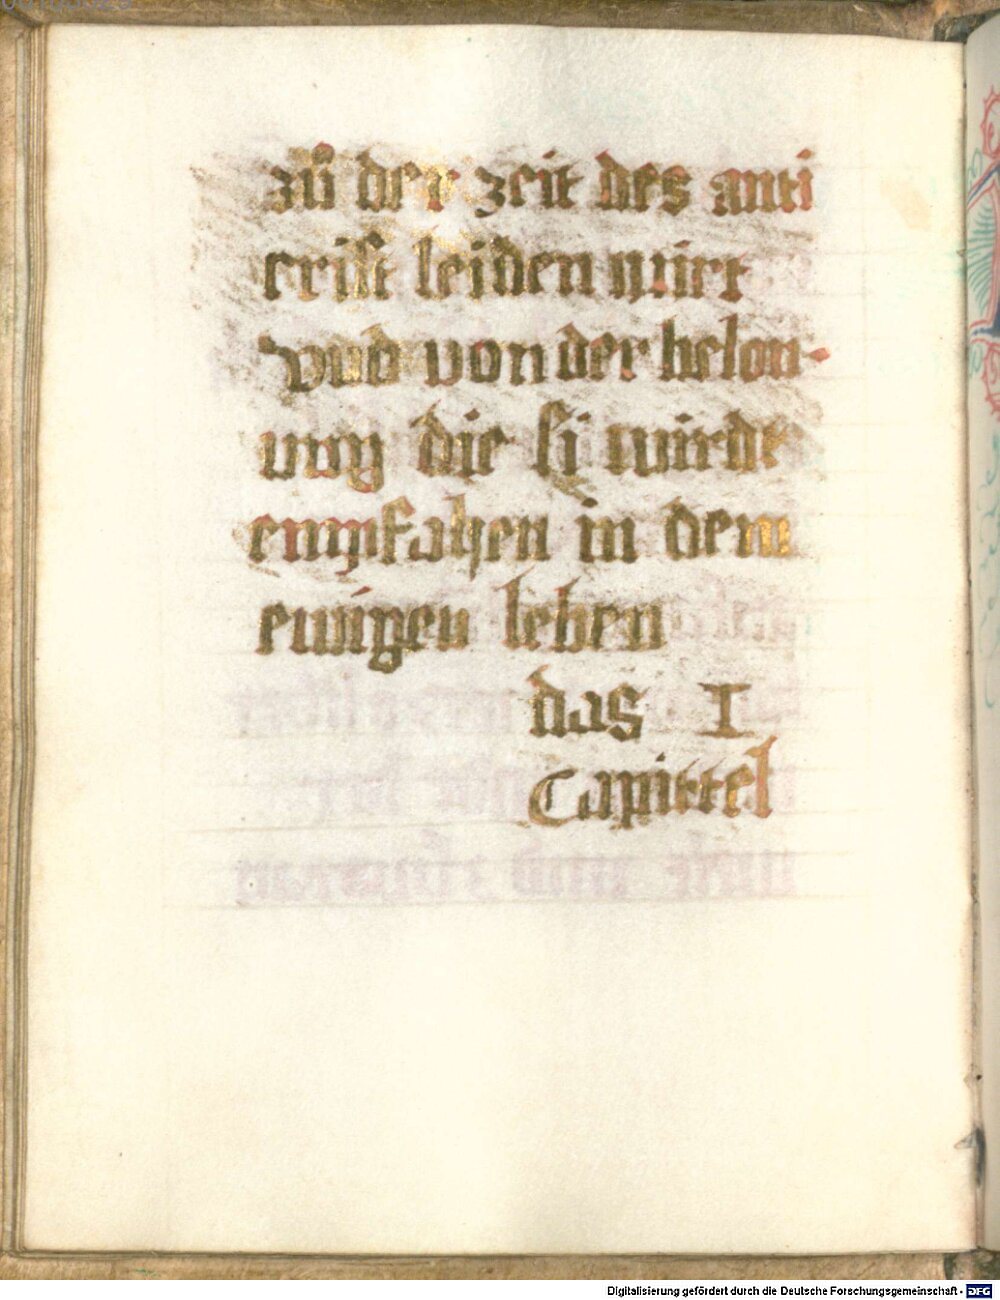 zů der zeit des anti
crist leiden wirt
vnd von der belon-
ung die si wirde
empfahen in dem
ewigen leben
das I
Capittel
Digitalisierung gefördert durch die Deutsche Forschungsgemeinschaft - DFG